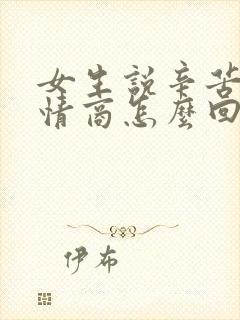 女生說辛苦
情商怎麼回
伊布